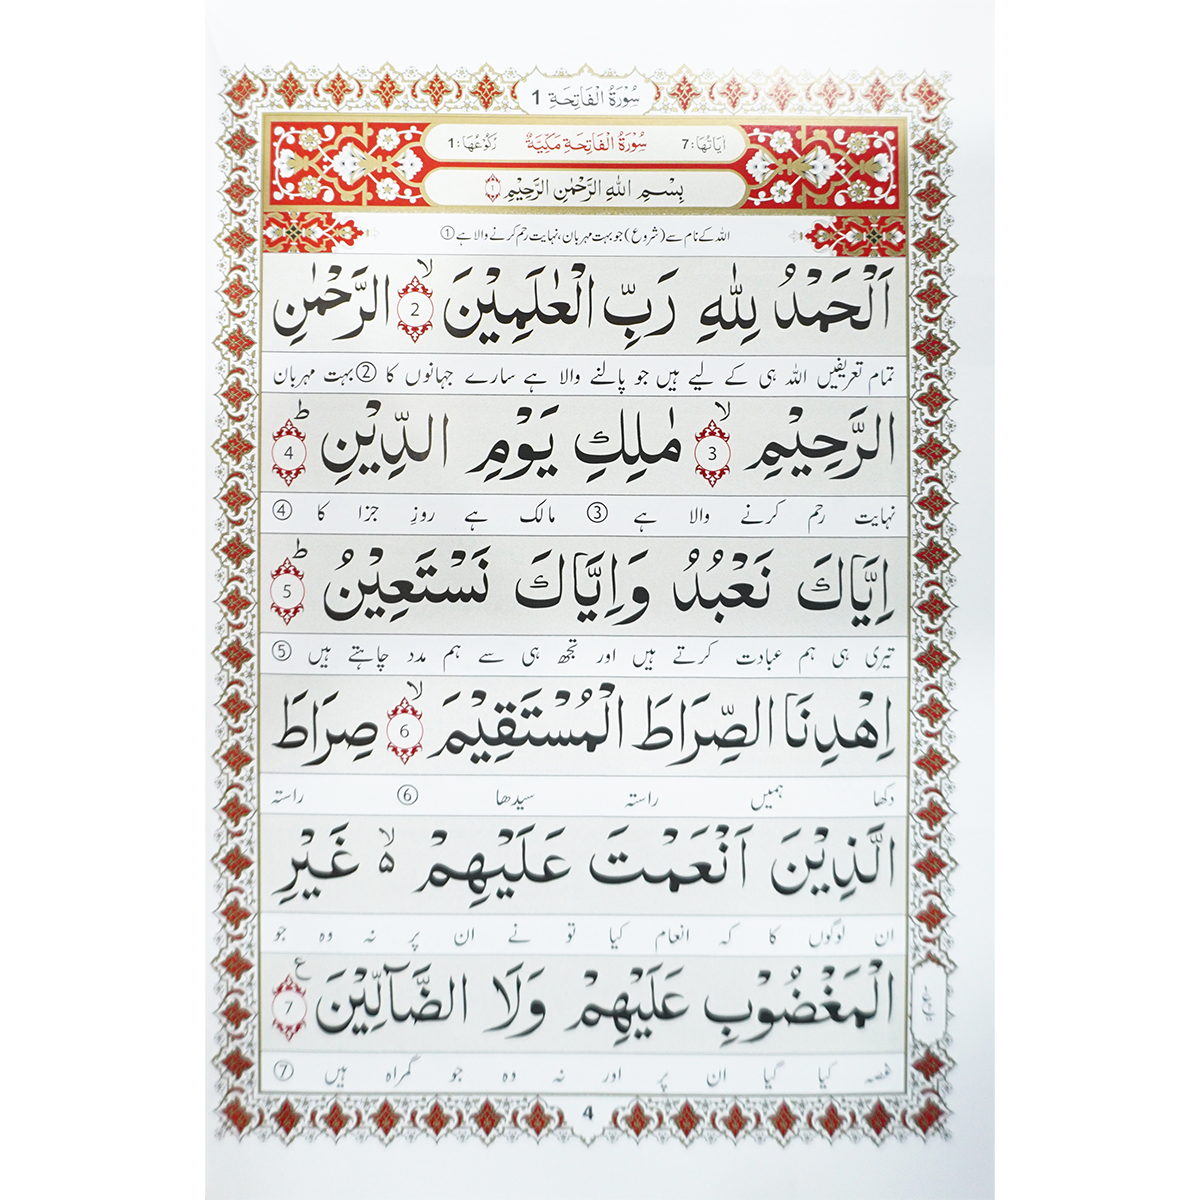 سُوْرَةُ الْفَاتِحَةِ 1
اٰيَاتُهَا: 7 سُوْرَةُ الْفَاتِحَةِ مَكِّيَّةٌ رُكُوْعُهَا: 1
بِسْمِ اللّٰهِ الرَّحْمٰنِ الرَّحِيْمِ ۝١
اللہ کے نام سے (شروع) جو بہت مہربان، نہایت رحم کرنے والا ہے ①
اَلْحَمْدُ لِلّٰهِ رَبِّ الْعٰلَمِيْنَ ۙ 2 الرَّحْمٰنِ
تمام تعریفیں اللہ ہی کے لیے ہیں جو پالنے والا ہے سارے جہانوں کا ② بہت مہربان
الرَّحِيْمِ ۙ 3 مٰلِكِ يَوْمِ الدِّيْنِ ؕ 4
نہایت رحم کرنے والا ہے ③ مالک ہے روزِ جزا کا ④
اِيَّاكَ نَعْبُدُ وَاِيَّاكَ نَسْتَعِيْنُ ؕ 5
تیری ہی ہم عبادت کرتے ہیں اور تجھ ہی سے ہم مدد چاہتے ہیں ⑤
اِهْدِنَا الصِّرَاطَ الْمُسْتَقِيْمَ ۙ 6 صِرَاطَ
دکھا ہمیں راستہ سیدھا ⑥ راستہ
الَّذِيْنَ اَنْعَمْتَ عَلَيْهِمْ ۵ ۙ غَيْرِ
ان لوگوں کا کہ انعام کیا تو نے ان پر نہ وہ جو
الْمَغْضُوْبِ عَلَيْهِمْ وَلَا الضَّآلِّيْنَ ع 7
غصہ کیا گیا ان پر اور نہ وہ جو گمراہ ہیں ⑦
4